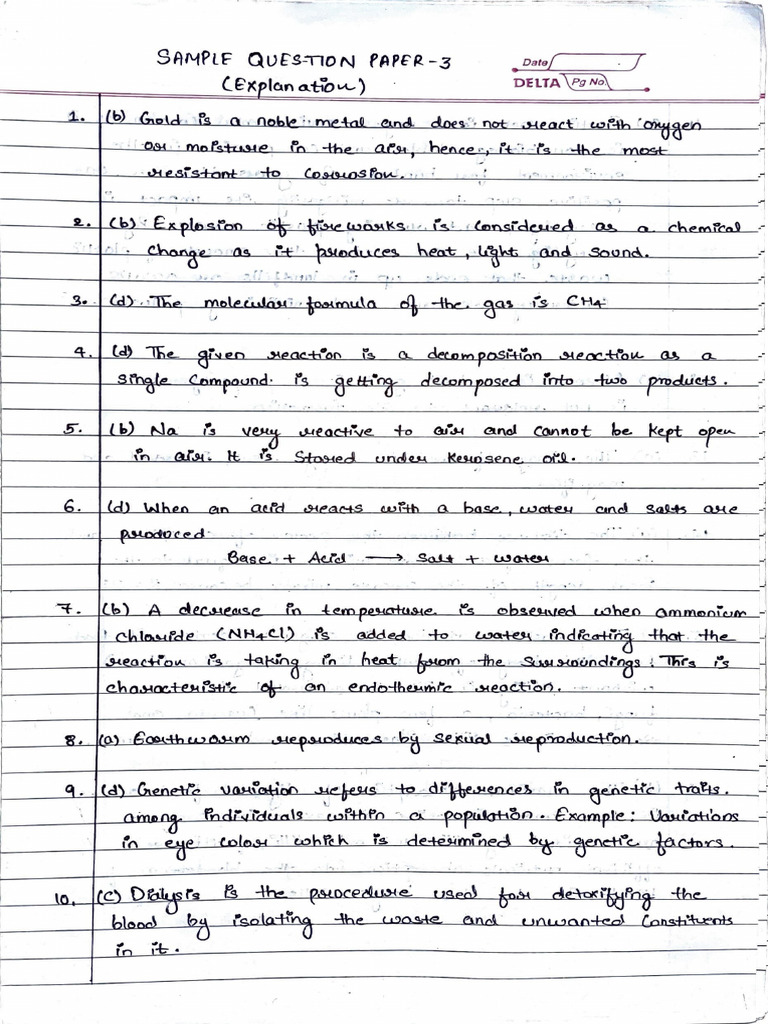 SAMPLE QUESTION PAPER-3
(Explanation)
Date
DELTA Pg No.
1. (b) Gold is a noble metal and does not react with oxygen
or moisture in the air, hence, it is the most
resistant to corrosion.
2. (b) Explosion of fireworks is considered as a chemical
change as it produces heat, light and sound.
3. (d) The molecular formula of the gas is CH4
4. (d) The given reaction is a decomposition reaction as a
single compound is getting decomposed into two products.
5. (b) Na is very reactive to air and cannot be kept open
in air. It is stored under kerosene oil.
6. (d) When an acid reacts with a base, water and salts are
produced
Base + Acid → Salt + water
7. (b) A decrease in temperature is observed when ammonium
chloride (NH4Cl) is added to water indicating that the
reaction is taking in heat from the surroundings. This is
characteristic of an endothermic reaction.
8. (a) Earthworm reproduces by sexual reproduction.
9. (d) Genetic variation refers to differences in genetic traits.
among individuals within a population. Example: Variations
in eye color which is determined by genetic factors.
10. (c) Dialysis is the procedure used for detoxifying the
blood by isolating the waste and unwanted constituents
in it.